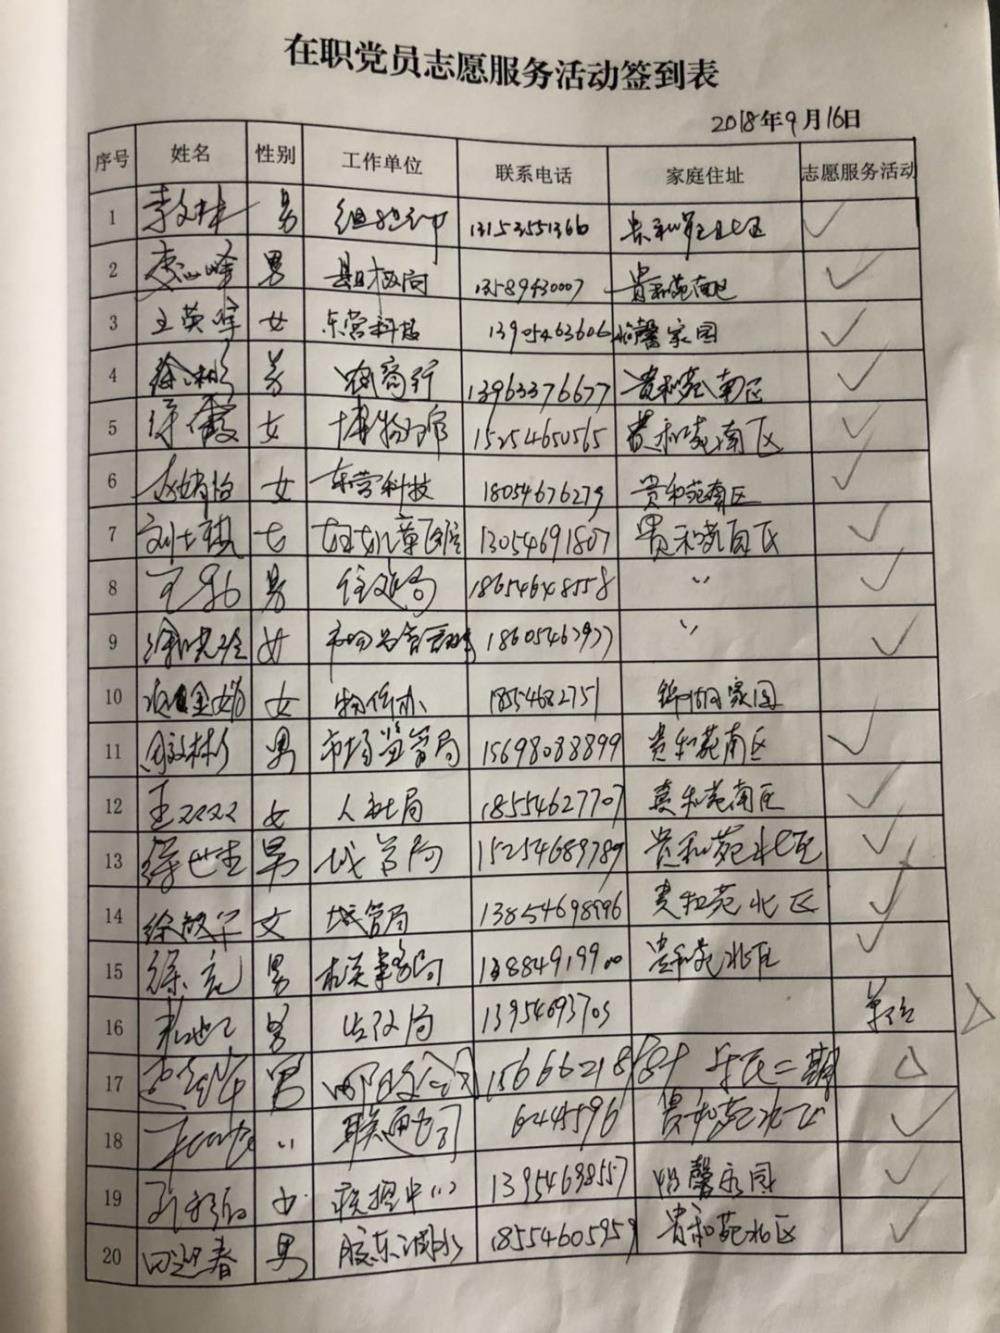 在职党员志愿服务活动签到表
2018年9月16日
序号 姓名 性别 工作单位 联系电话 家庭住址 志愿服务活动
1 李文林 男 组织部 13153551366 贵和苑北区 ✓
2 男 13589430007 贵和苑南区 ✓
3 王英军 女 东营科技 13905463606 怡馨家园 ✓
4 男 农商行 13963376677 贵和苑南区 ✓
5 徐霞 女 博物馆 15254650565 贵和苑南区 ✓
6 赵婧怡 女 东营科技 18054676279 贵和苑南区 ✓
7 女 妇女儿童医院 13054691807 贵和苑南区 ✓
8 男 住建局 18654648558 〃 ✓
9 徐晓玲 女 〃 ✓
10 女 物价办 18554682751 家园
11 男 市场监管局 15698088899 贵和苑南区 ✓
12 王双双 女 人社局 18554627707 贵和苑南区 ✓
13 男 城管局 15254689789 贵和苑北区 ✓
14 徐敏华 女 城管局 贵和苑北区 ✓
15 徐亮 男 贵和苑北区 ✓
16 男 13954693703 △
17 男 邮政公司 乐民二期 △
18 〃 联通公司 6445596 贵和苑北区 ✓
19 女 疾控中心 13954698557 怡馨家园 ✓
20 田迎春 男 胶东调水 18554605959 贵和苑北区 ✓